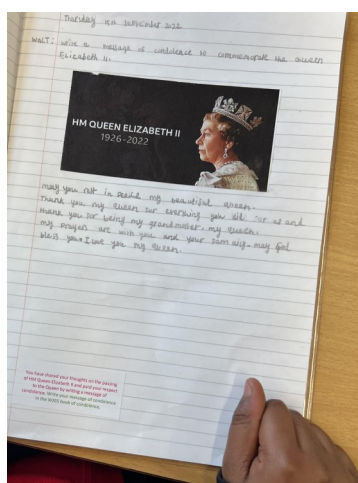 Thursday 15th September 2022
WALT: write a message of condolence to commemorate the Queen
Elizabeth II.
HM QUEEN ELIZABETH II
1926-2022
may you rest in my beautiful queen.
Thank you my queen sor everything you did sor us and
thank you sor being my grandmother. my queen.
my prayers are with you and your samily. may God
bless you. I love you my queen.
You have shared your thoughts on the passing
of HM Queen Elizabeth II and paid your respect
to the Queen by writing a message of
condolence. Write your message of condolence
in the book of condolence.